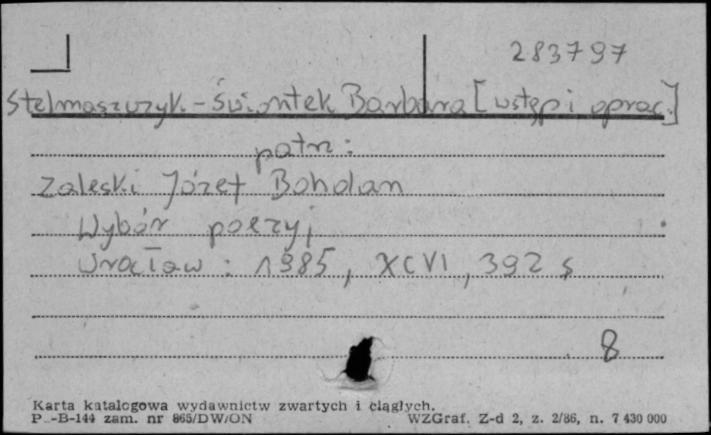 283797
Stelmaszczyk-Świontek Barbara [wstęp i oprac.]
patrz:
Zaleski Józef Bohdan
Wybór poezyj
Wrocław: 1985, XCVI, 392 s
8
Karta katalogowa wydawnictw zwartych i ciągłych.
P.-B-144 zam. nr 865/DW/ON WZGraf. Z-d 2, z. 2/86, n. 7 430 000